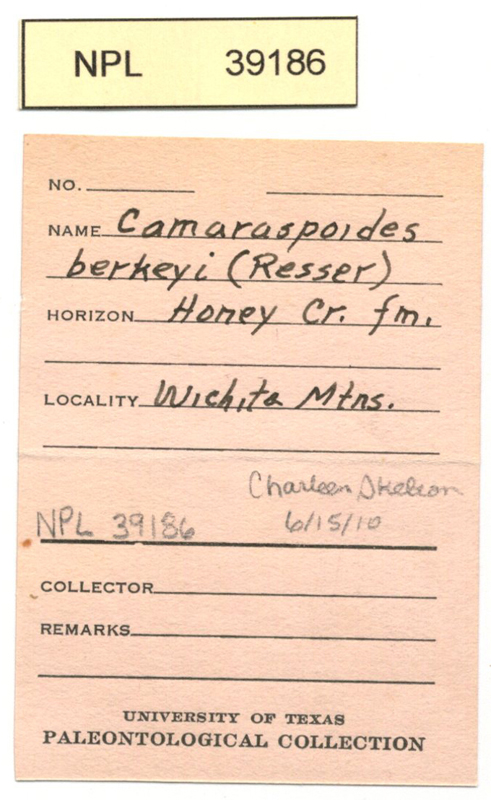 NPL 39186
NO.
NAME Camaraspoides
berkeyi (Resser)
HORIZON Honey Cr. fm.
LOCALITY Wichita Mtns.
Charleen
NPL 39186 6/15/10
COLLECTOR
REMARKS
UNIVERSITY OF TEXAS
PALEONTOLOGICAL COLLECTION